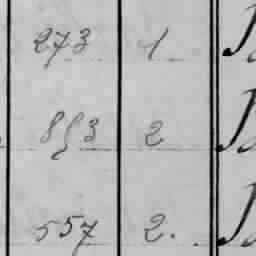 273 1
853 2
557 2.